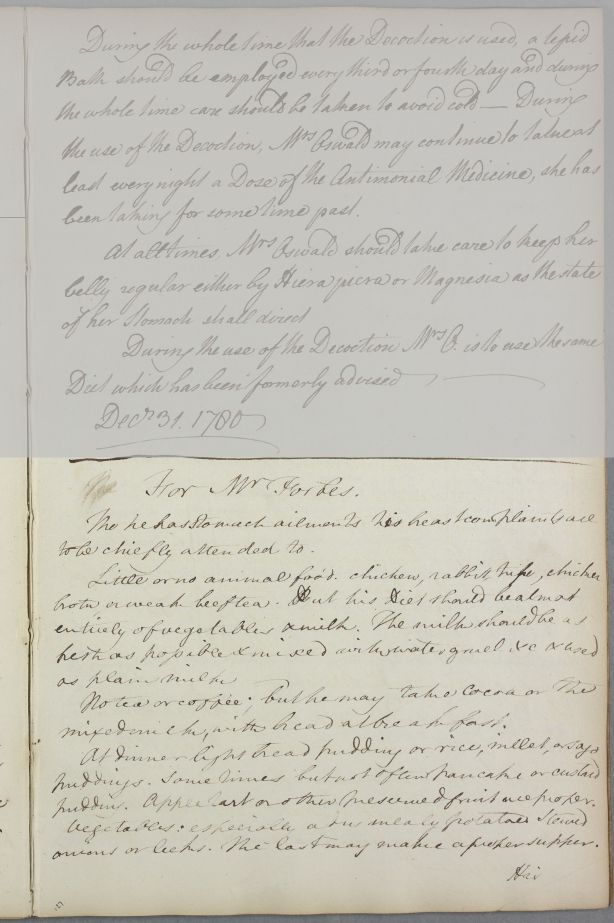 During the whole time that the Decoction is used, a tepid
Bath should be employed every third or fourth day and during
the whole time care should be taken to avoid cold — During
the use of the Decoction, Mrs Oswald may continue to take at
least every night a Dose of the Antimonial Medicine, she has
been taking for some time past.
At all times, Mrs Oswald should take care to keep her
belly regular either by Hiera picra or Magnesia as the state
of her Stomach shall direct
During the use of the Decoction Mrs O. is to use the same
Diet which has been formerly advised
Decr 31. 1780
For Mr Forbes.
Tho he has Stomach ailments his breast complaints are
to be chiefly attended to.
Little or no animal food. chicken, rabbit, tripe, chicken
broth or weak beef tea. But his Diet should be almost
entirely of vegetables & milk. The milk should be as
fresh as possible & mixed with water gruel &c & used
as plain milk
No tea or coffee; but he may take Cocoa or the
mixed milk, with bread at breakfast.
At dinner light bread pudding or rice, millet, or sago
puddings. Some times but not often pancake or custard
pudding. Apple tart or other preserved fruit are proper.
Vegetables: especially a dry mealy potatoe Stewed
onions or leeks. The last may make a proper supper.
His